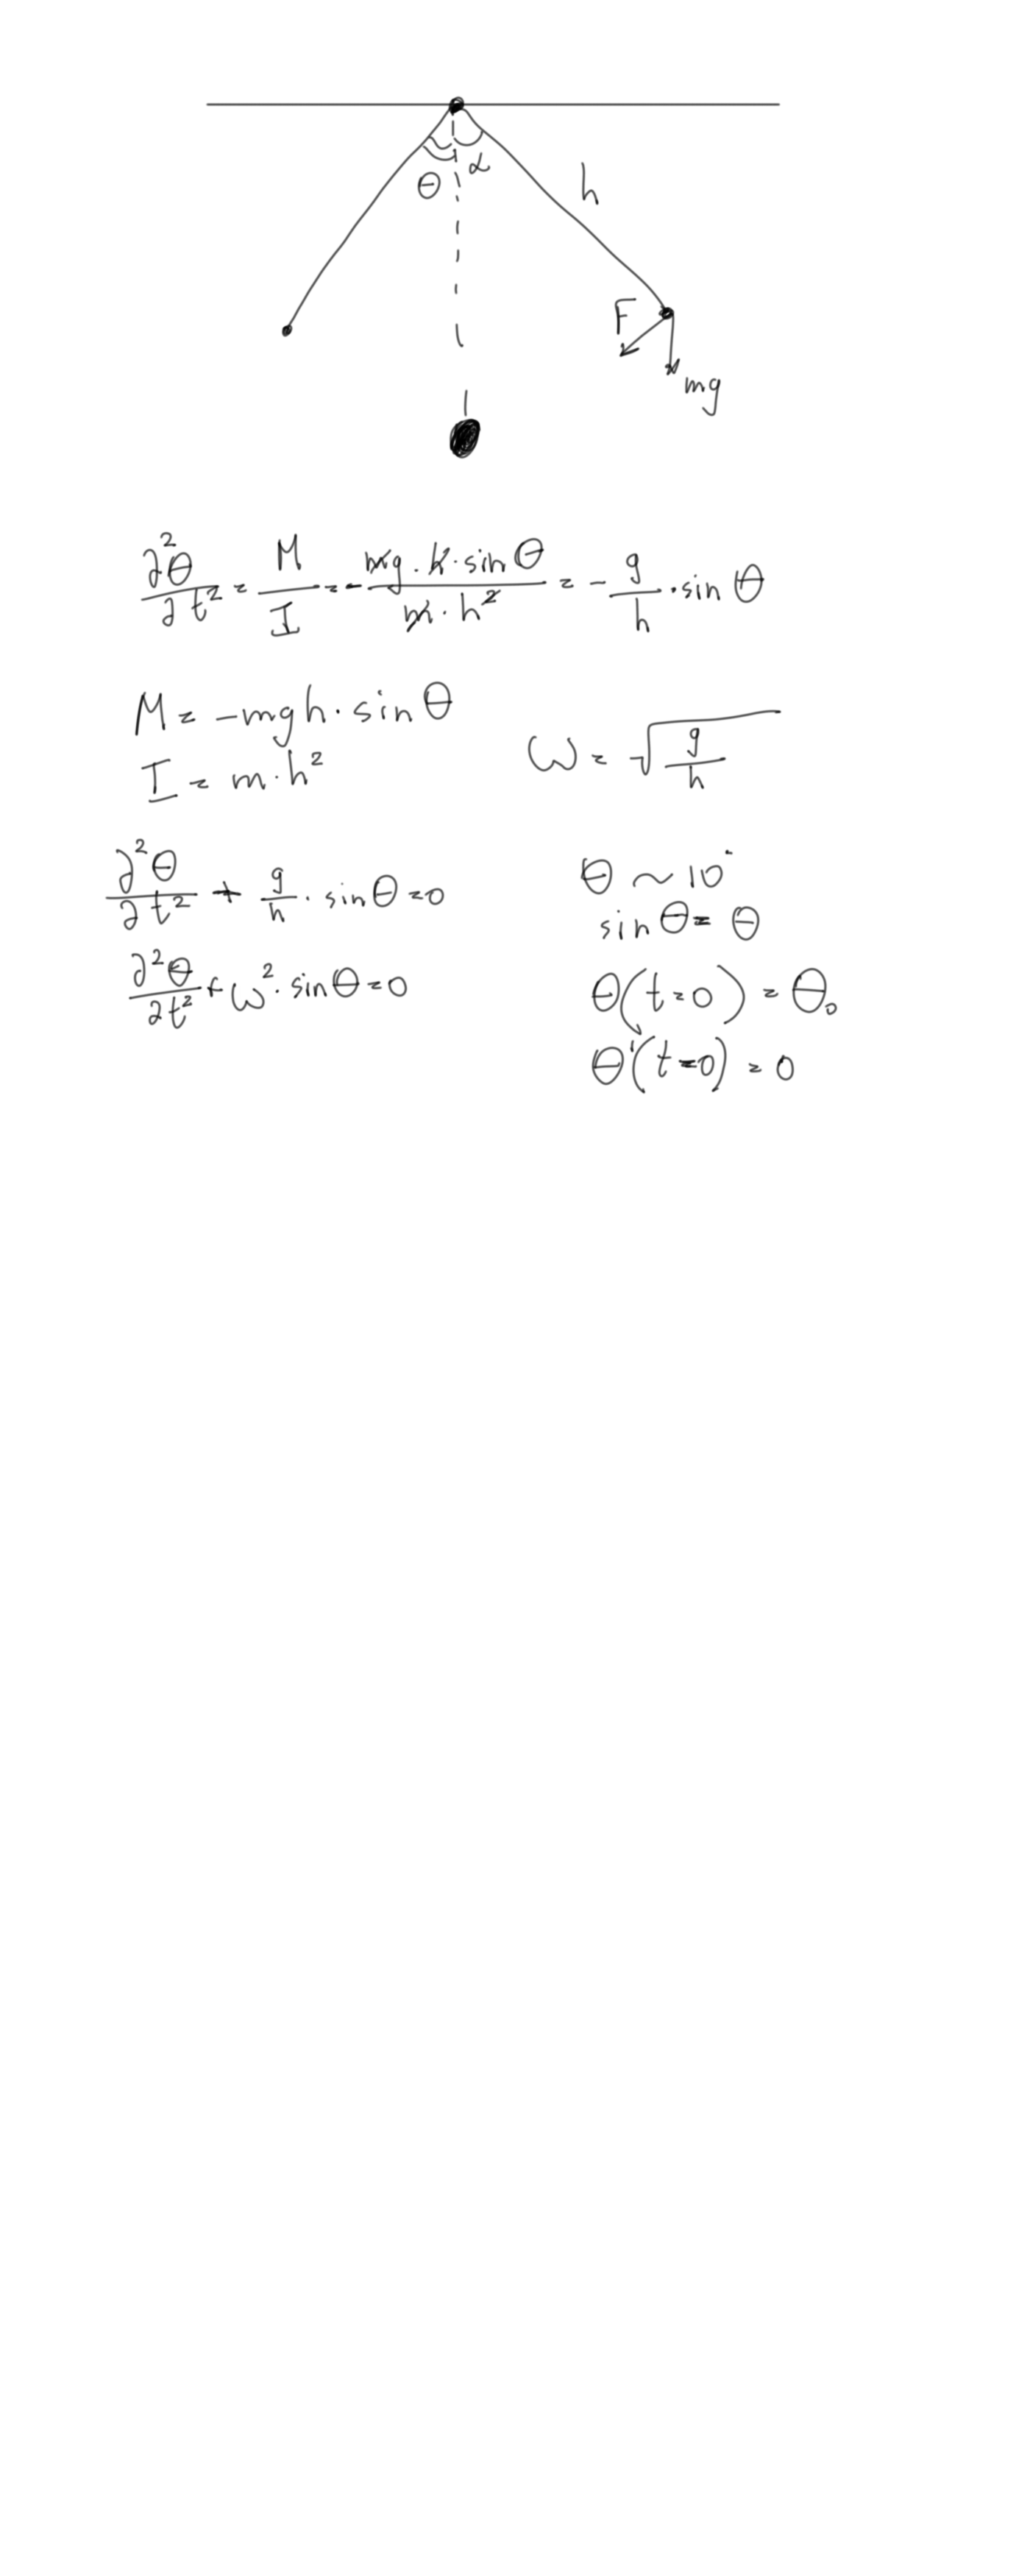 θ α
h
F
mg
∂²θ/∂t² = M/I = - mg · h · sin θ / m · h² = - g/h · sin θ
M = -mgh · sin θ
I = m · h²
ω = √(g/h)
∂²θ/∂t² + g/h · sin θ = 0
∂²θ/∂t² + ω² · sin θ = 0
θ ~ 10°
sin θ = θ
θ(t=0) = θ₀
θ'(t=0) = 0